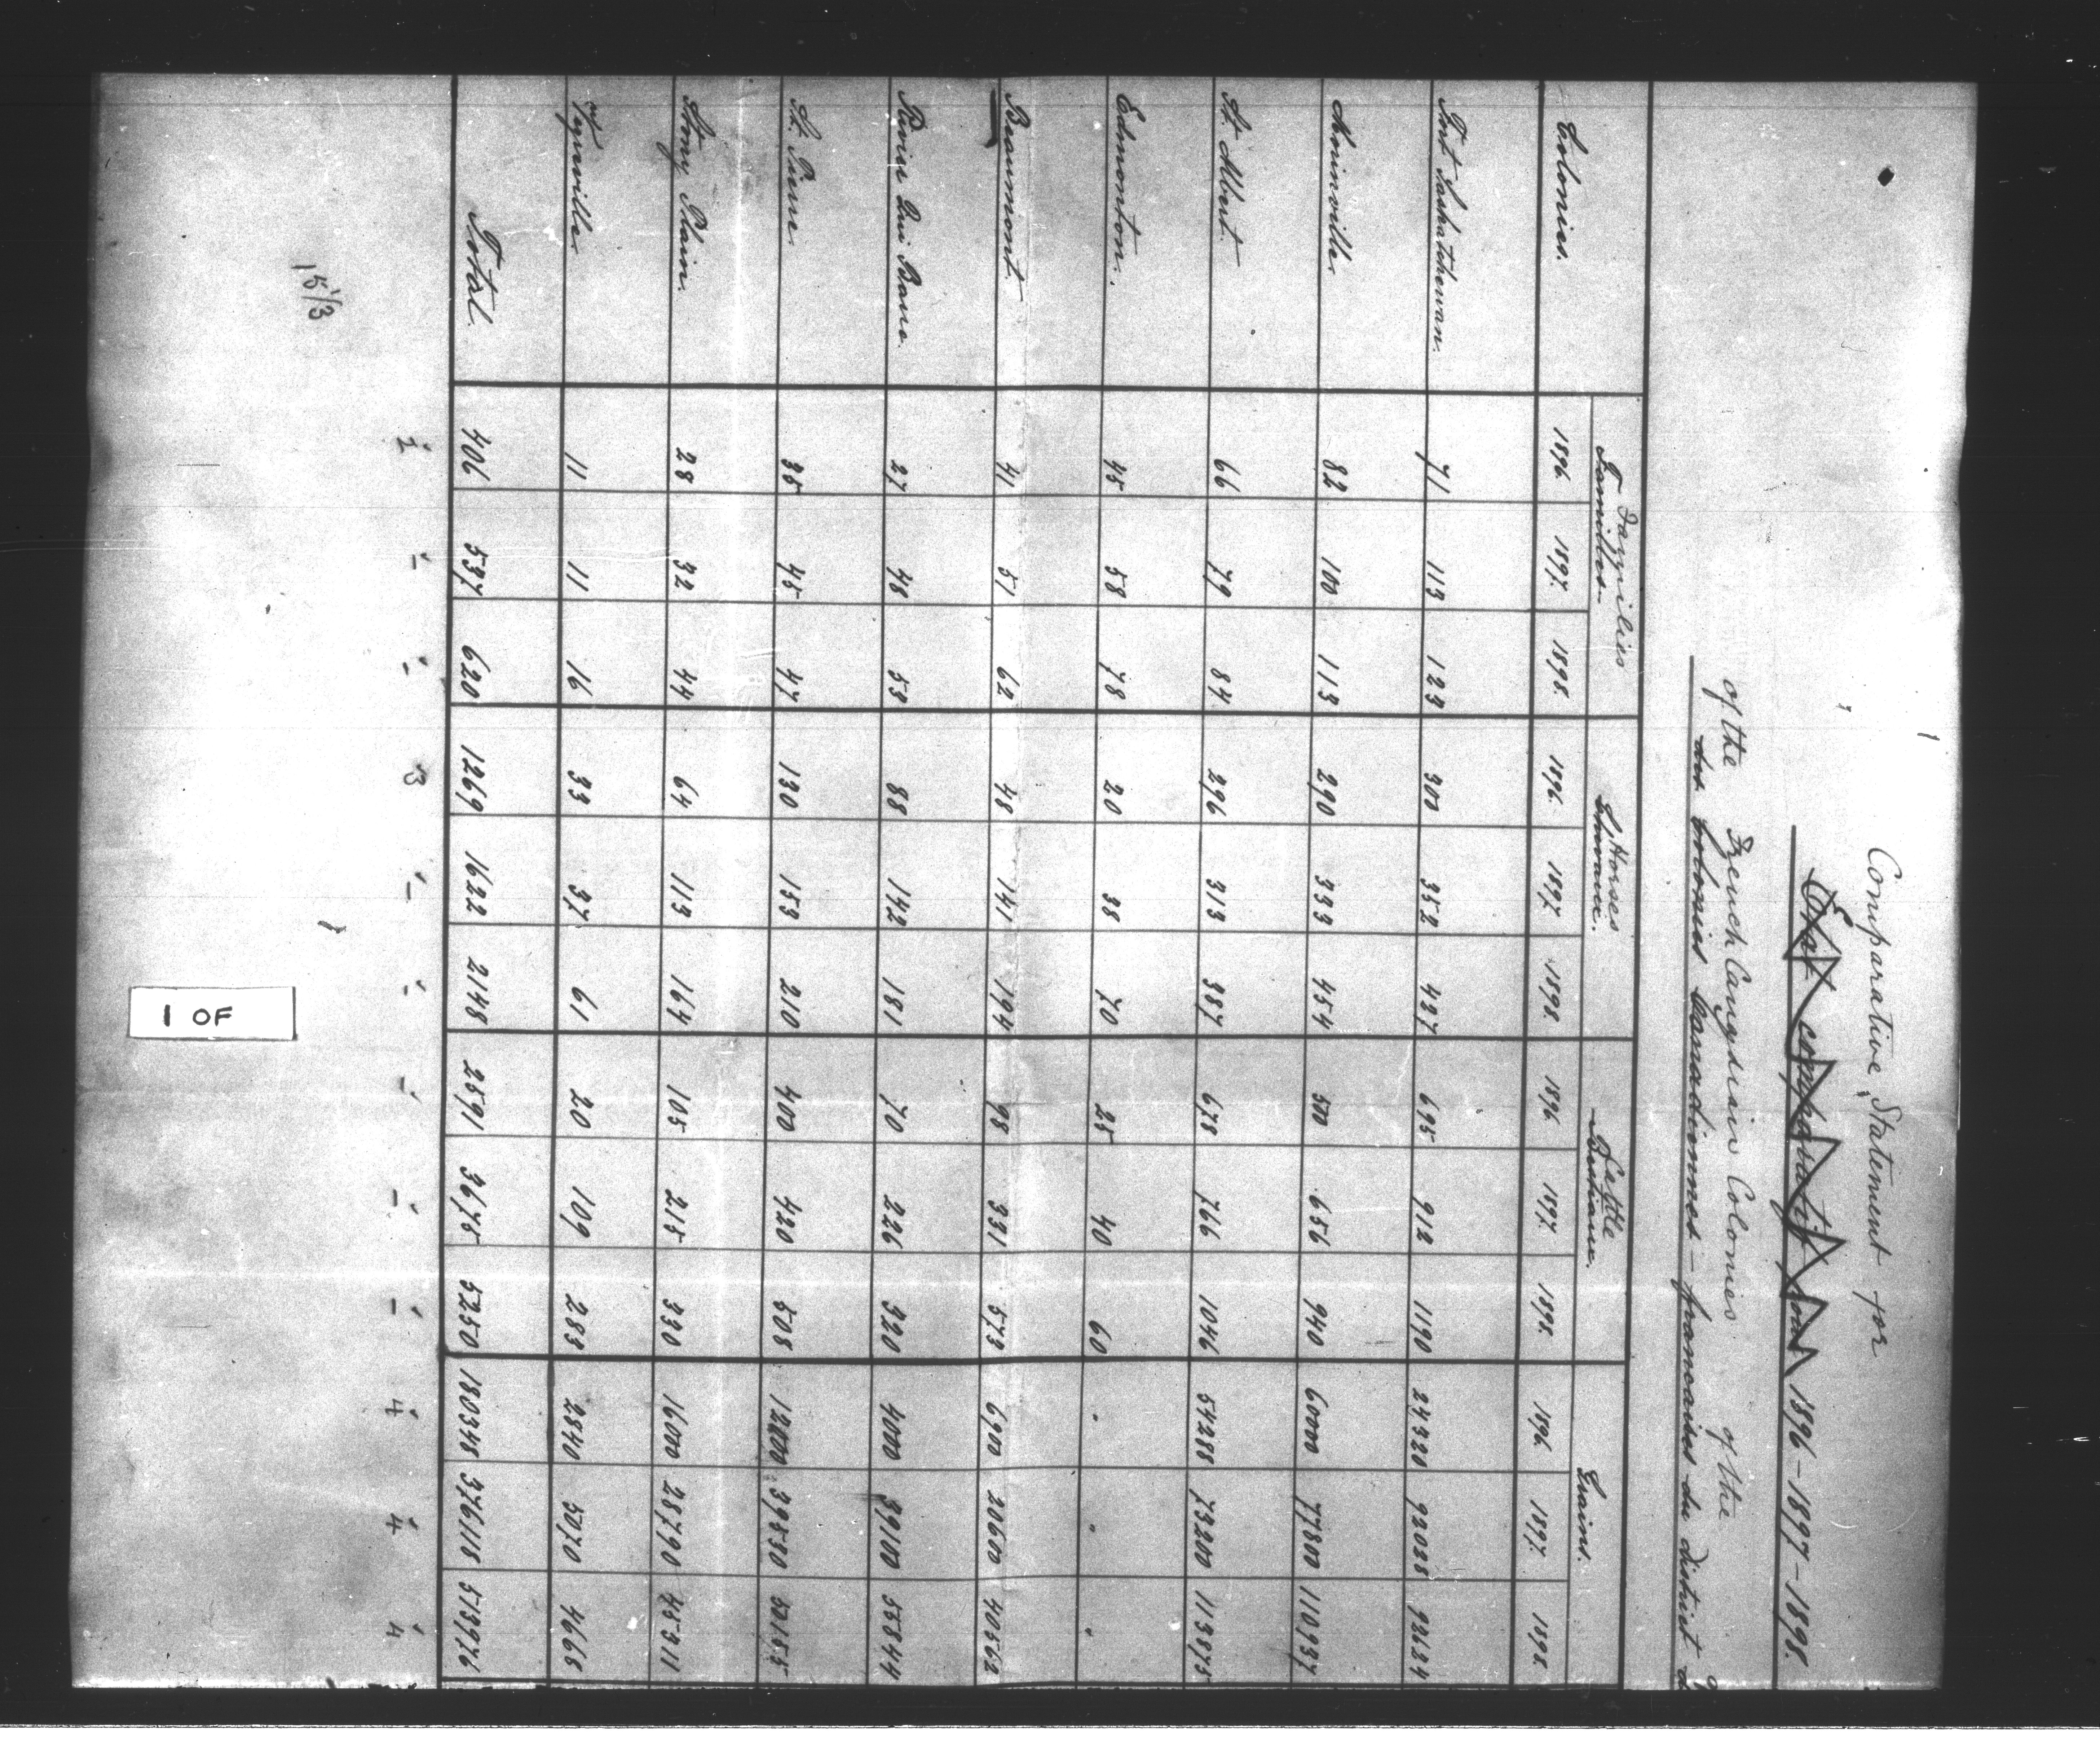 Comparative Statement for
État comparatif pour 1896-1897-1898.
of the French Canadian Colonies of the
des Colonies Canadiennes-francaises du district
Colonies. Families Horses Cattle Grains.
Familles. Chevaux. Bestiaux.
1896. 1897. 1898. 1896. 1897. 1898. 1896. 1897. 1898. 1896. 1897. 1898.
Fort Saskatchewan. 71 113 123 300 352 427 695 912 1190 24320 92028 92624
Morinville. 82 100 113 290 333 454 500 656 940 60000 77800 110937
St. Albert. 66 79 84 296 313 387 678 766 1046 54288 73200 113875
Edmonton. 45 58 78 20 38 70 25 40 60 " " "
Beaumont. 41 51 62 48 141 194 98 331 573 6900 20600 40562
Rivière Qui Barre. 27 48 53 88 142 181 70 226 320 4000 39100 55844
St. Pierre. 35 45 47 130 153 210 400 420 508 12000 39530 50155
Stony Plain. 28 32 44 64 113 164 105 215 330 16000 28790 45311
Vegreville. 11 11 16 33 37 61 20 109 283 2840 5070 4668
Total. 406 537 620 1269 1622 2148 2591 3675 5250 180348 376118 513976
1 OF